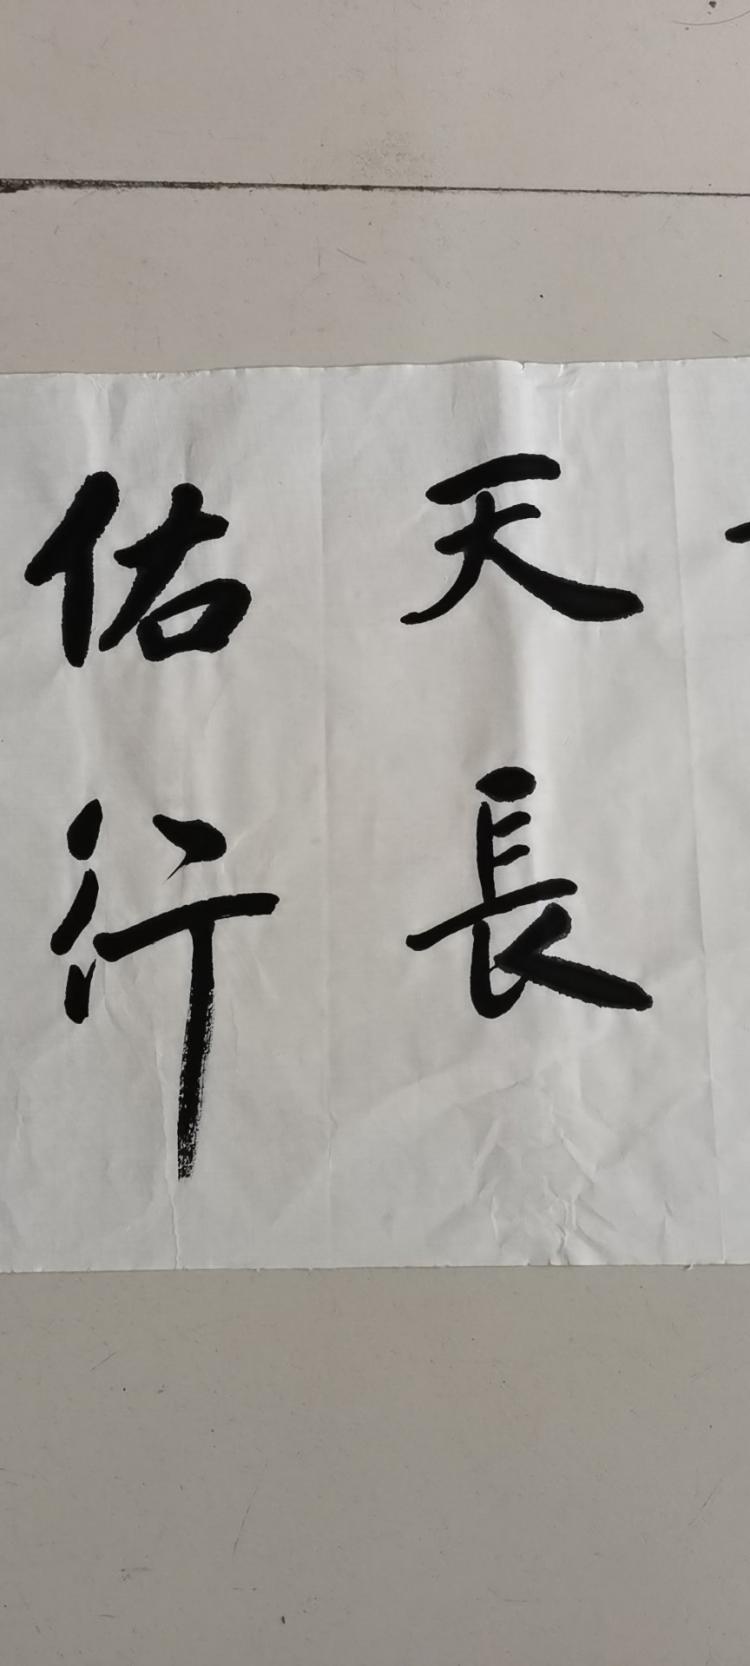 天長
佑行